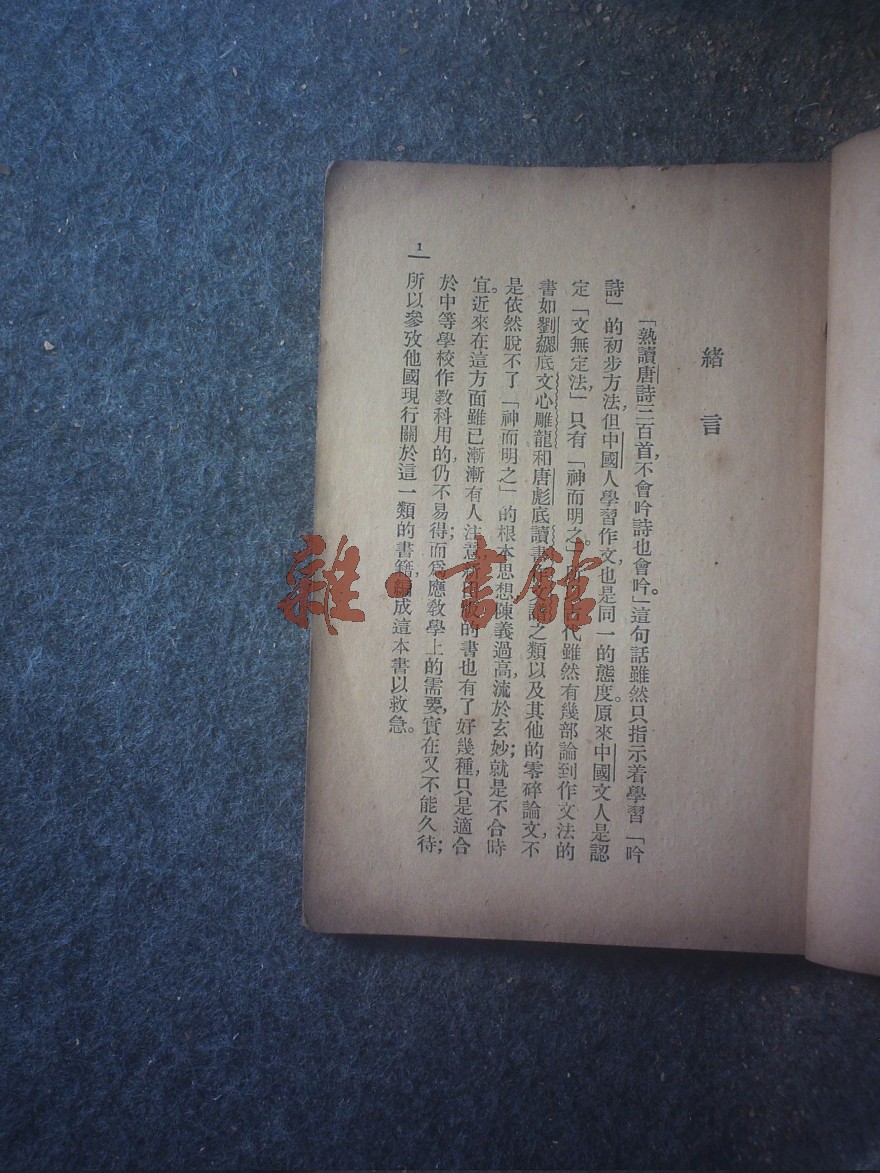 緒言
「熟讀唐詩三百首，不會吟詩也會吟。」這句話雖然只指示着學習「吟
詩」的初步方法，但中國人學習作文也是同一的態度。原來中國文人是認
定「文無定法」，只有「神而明之。」代雖然有幾部論到作文法的
書如劉勰底文心雕龍和唐彪底讀書譜之類以及其他的零碎論文，不
是依然脫不了「神而明之」的根本思想，陳義過高，流於玄妙；就是不合時
宜。近來在這方面雖已漸漸有人注意，的書也有了好幾種，只是適合
於中等學校作敎科用的，仍不易得；而爲應敎學上的需要，實在又不能久待；
所以參攷他國現行關於這一類的書籍，編成這本書以救急。
1
雜·書館